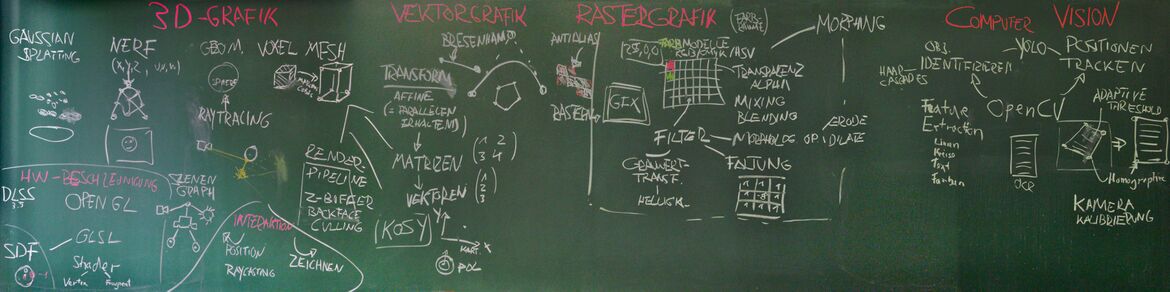 3D-GRAFIK
GAUSSIAN
SPLATTING
NERF
GEOM.
VOXEL
MESH
SPHERE
RAYTRACING
RENDER
PIPELINE
Z-BUFFER
BACKFACE
CULLING
HW-BESCHLEUNIGUNG
DLSS
3.5
OPEN GL
SZENEN
GRAPH
SDF
GLSL
Shader
Vertex
Fragment
INTERAKTION
POSITION
RAYCASTING
ZEICHNEN
VEKTORGRAFIK
BRESENHAM
TRANSFORM
AFFINE
(= PARALLELEN
ERHALTEND)
MATRIZEN
(1 2
3 4)
VEKTOREN
(1
2
3)
KOSY
Y
X
KART.
POL
RASTERGRAFIK
(FARB-
RÄUME)
ANTIALIAS
RASTERN
FARBMODELLE
RGB/CMYK/HSV
GIF
TRANSPARENZ
ALPHA
MIXING
BLENDING
FILTER
MORPHOLOG. OP.
ERODE
DILATE
GRAUWERT-
TRANSF.
HELLIGK.
FALTUNG
1 1 1
1 -8 1
1 1 1
MORPHING
COMPUTER VISION
OBJ.
IDENTIFIZIEREN
YOLO
POSITIONEN
TRACKEN
HAAR-
CASCADES
OPENCV
ADAPTIVE
THRESHOLD
Feature
Extraction
Linien
Kreise
Text
Farben
OCR
Homographie
KAMERA
KALIBRIERUNG